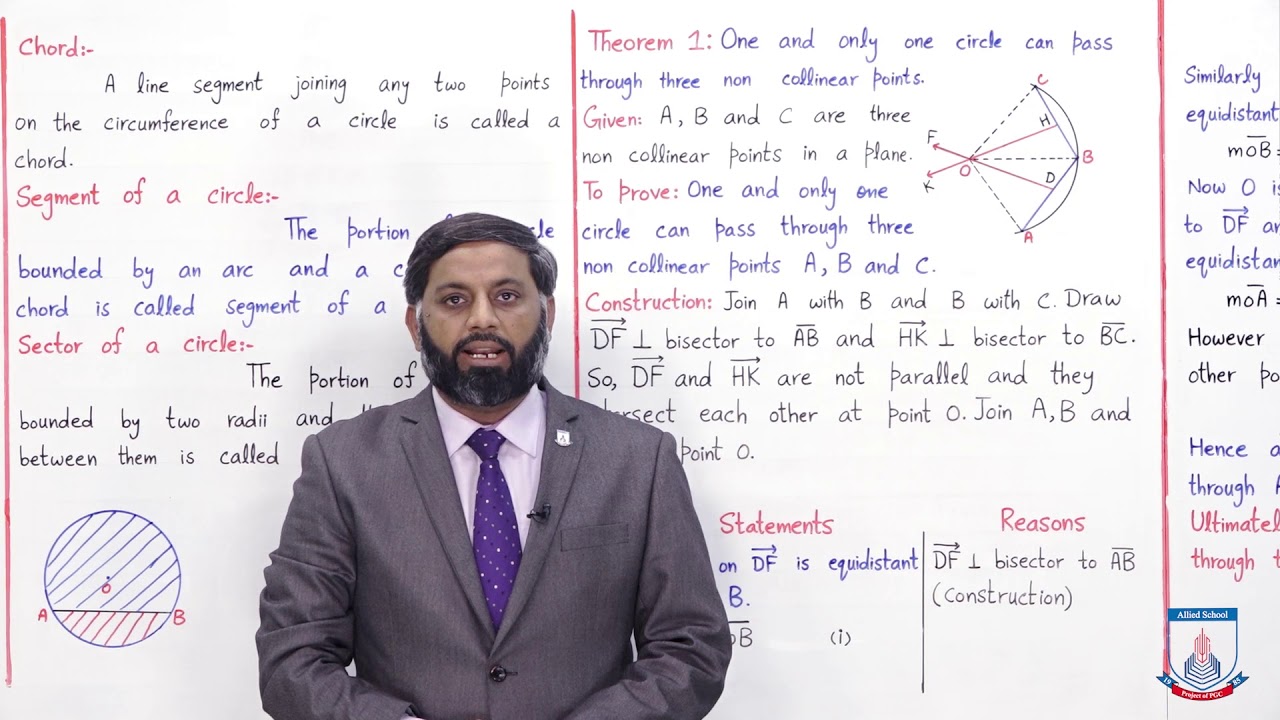 Chord:-
A line segment joining any two points
on the circumference of a circle is called a
chord.
Segment of a circle:-
The portion
bounded by an arc and a
chord is called segment of a
Sector of a circle:-
The portion of
bounded by two radii and
between them is called
O
A B
Theorem 1: One and only one circle can pass
through three non collinear points.
Given: A, B and C are three
non collinear points in a plane.
To Prove: One and only one
circle can pass through three
non collinear points A, B and C.
Construction: Join A with B and B with C. Draw
DF ⊥ bisector to AB and HK ⊥ bisector to BC.
So, DF and HK are not parallel and they
each other at point O. Join A, B and
point O.
C
H
F
B
O
K
D
A
Statements Reasons
on DF is equidistant
B.
oB (i)
DF ⊥ bisector to AB
(Construction)
Similarly
equidistant
moB =
Now O
to DF
moA =
However
other
Hence
through
Ultimately
through
Allied School
19 85
Project of PGC